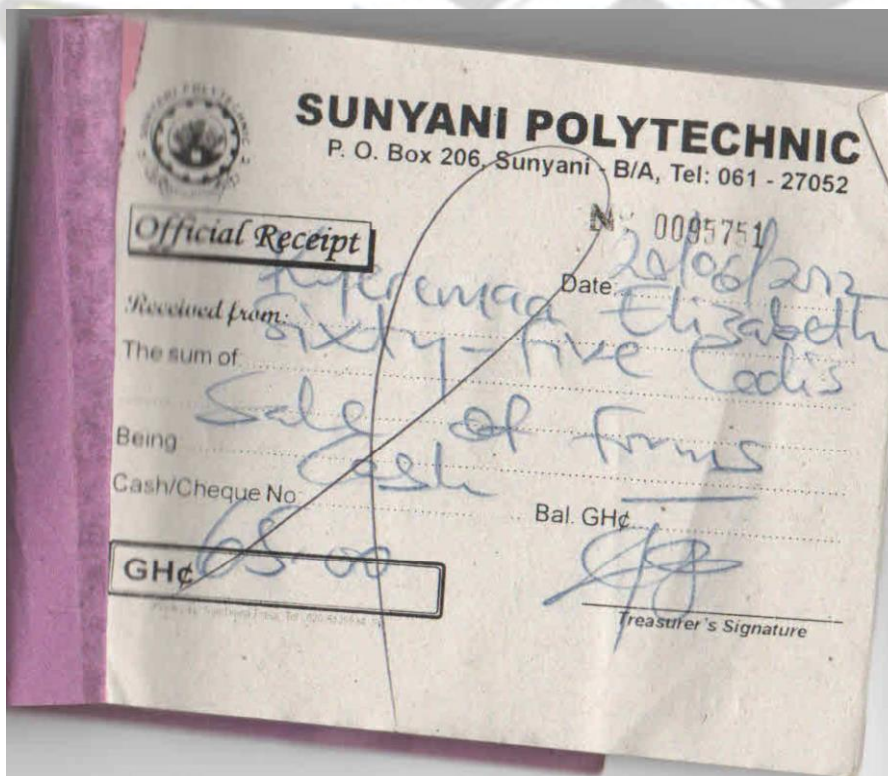 SUNYANI POLYTECHNIC
P. O. Box 206, Sunyani - B/A, Tel: 061 - 27052
SUNYANI POLYTECHNIC
Official Receipt
Nº 0095751
Date: 20/06/2012
Received from: Kyeremaa Elizabeth
The sum of Sixty-five Cedis
Being Sale of forms
Cash/Cheque No. Cash
Bal. GH¢
GH¢ 65-00
Treasurer's Signature